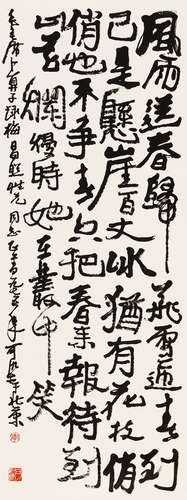 風雨送春歸飛雪迎春到
已是懸崖百丈冰猶有花枝俏
俏也不争春只把春来報待到
山花爛縵時她在叢中笑
毛主席卜算子詠梅 同志 北京